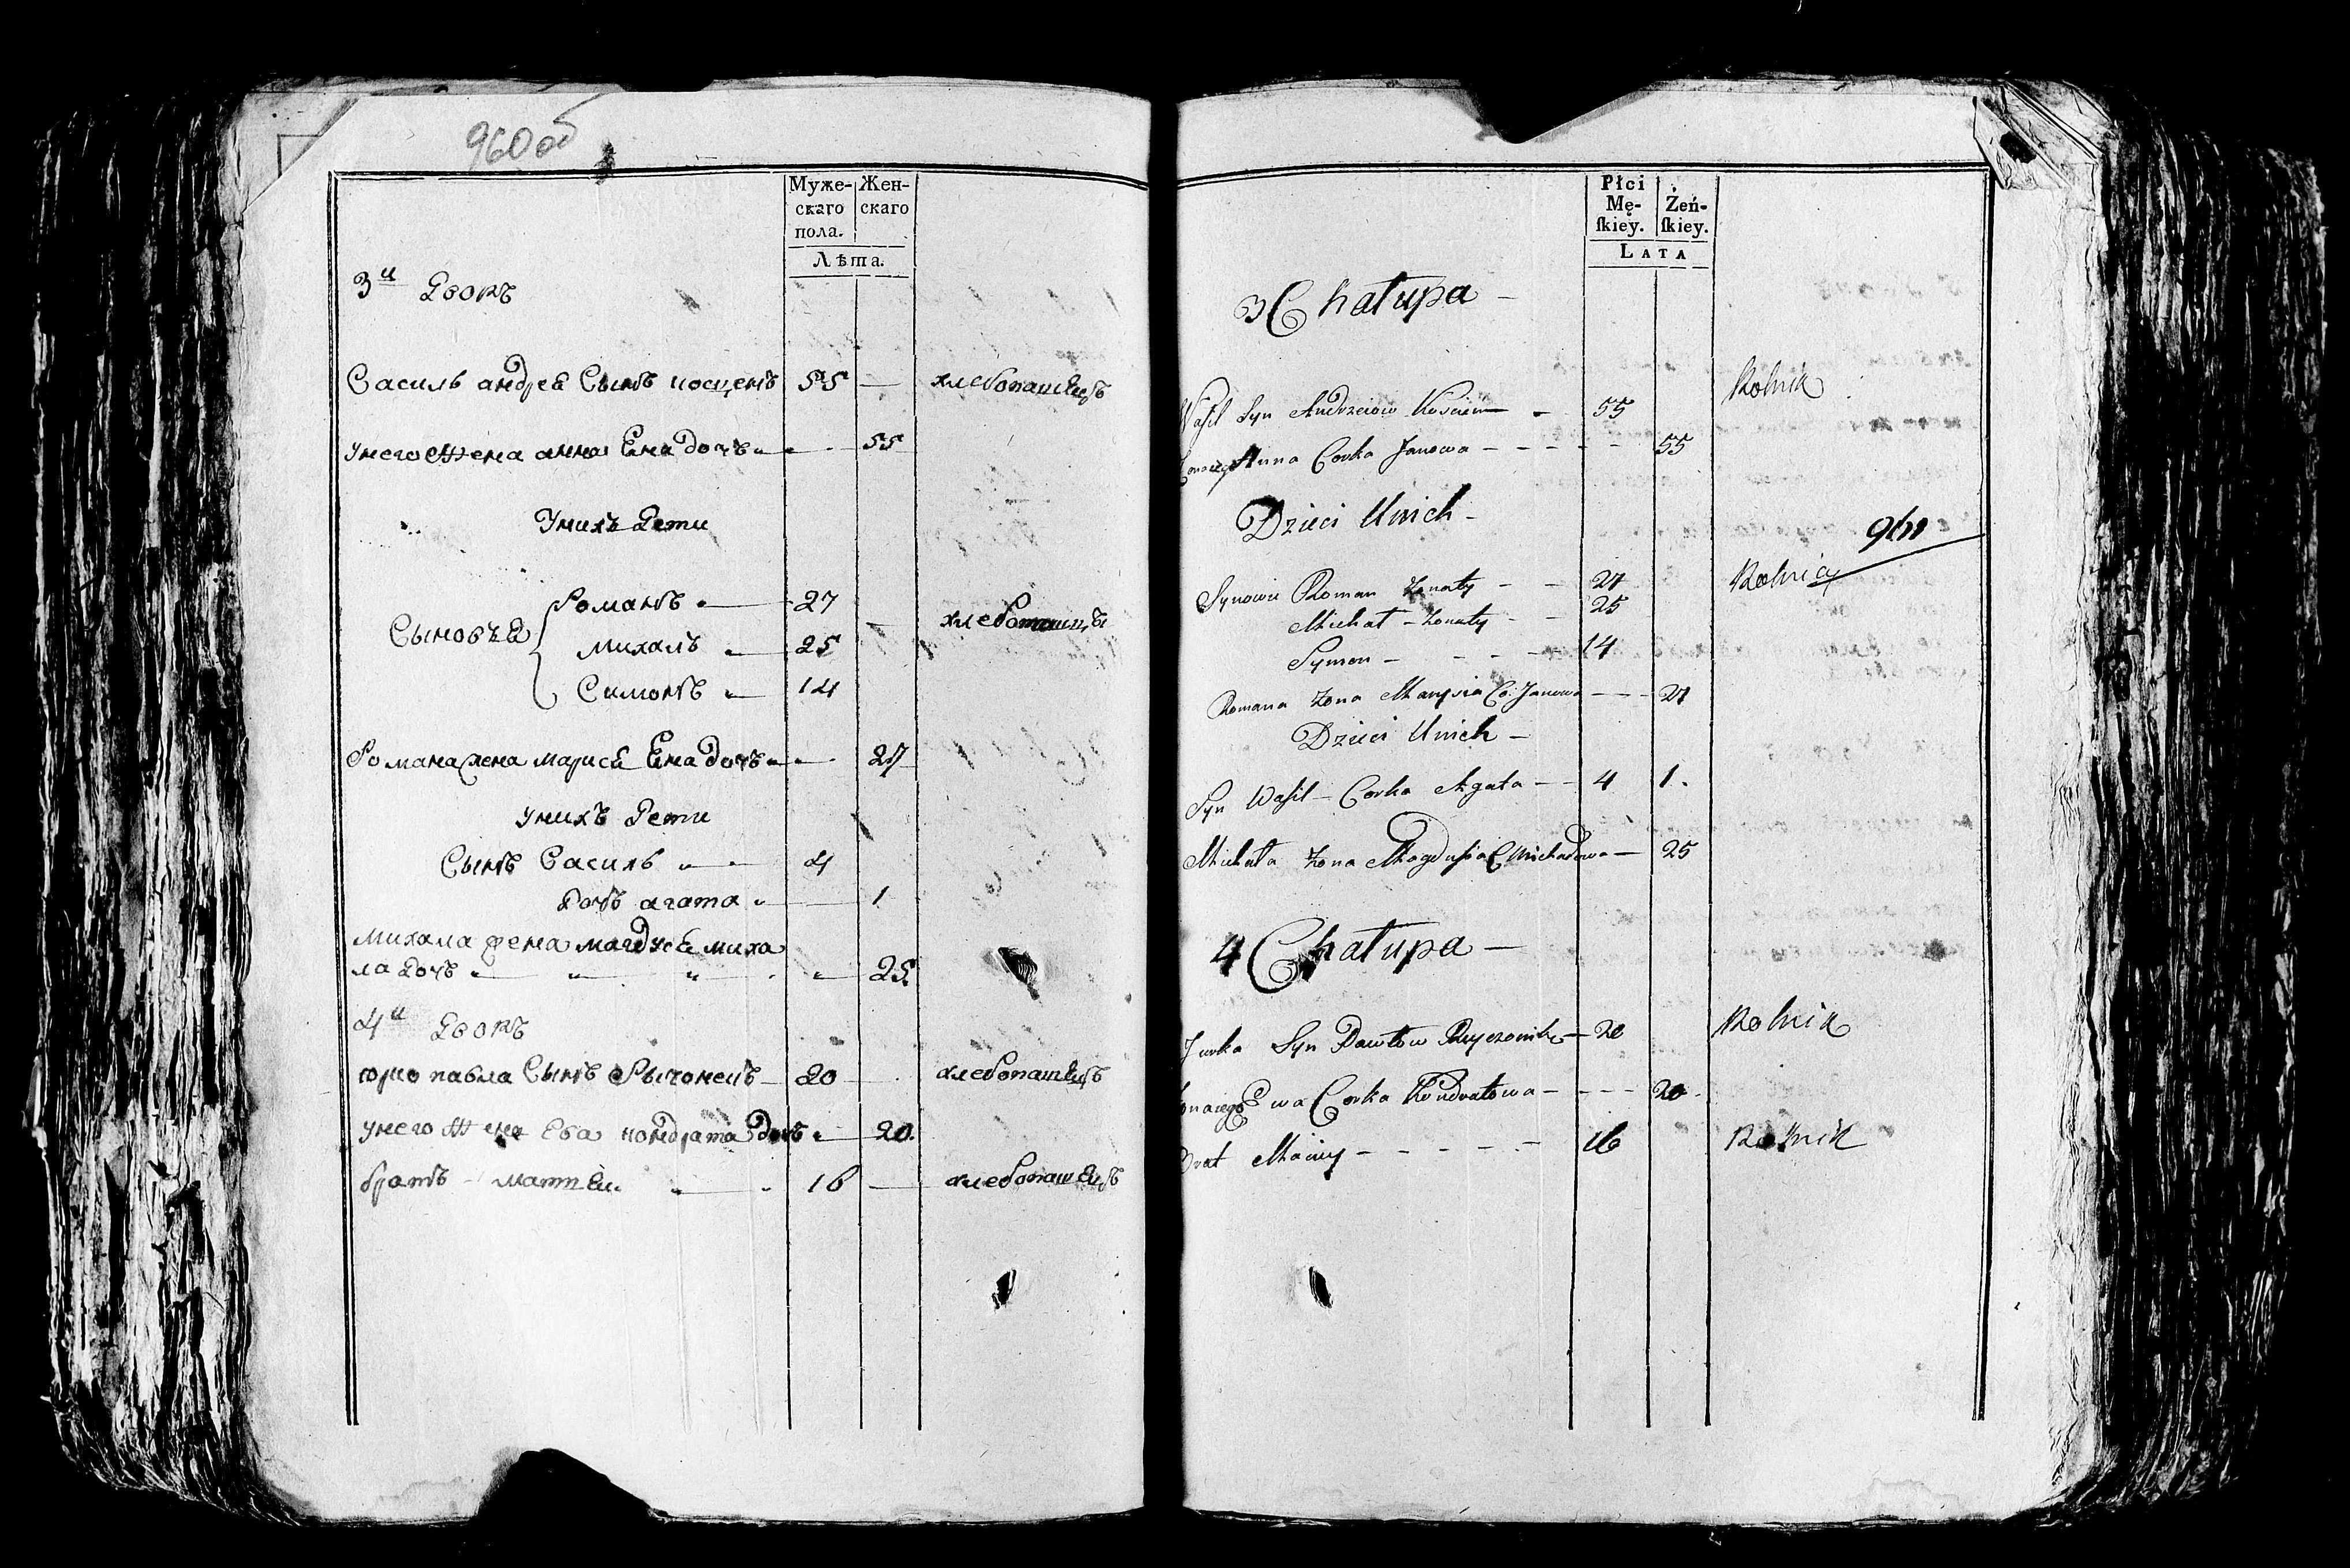 960 об
Муже- Жен-
скаго скаго
пола.
Лѣта.
3й Дворъ
Василь андрея Сынъ косценъ 55 — хлебопашецъ
унего жена анна Яна дочь 55
Унихъ Дети
Сыновья Романъ 27 — хлебопашцы
Михалъ 25
Симонъ 14
Романа жена марися Яна дочь 27
унихъ Дети
Сынъ Василь 4
дочь агата 1
Михала жена магдуся миха
ла дочь 25
4й Дворъ
юрко павла Сынъ Рычонекъ 20 хлебопашецъ
унего жена Ева кондрата дочь 20
братъ маттей 16 — хлебопашецъ
Płci Żeń-
Mę- ſkiey.
ſkiey.
LATA
3 Chałupa —
Waſil Syn Andrzeiow Koscien — 55 Rolnik
Żona iego Anna Corka Janowa — 55
Dzieci Unich —
961
Synowie Roman Żonaty — 27 Rolnicy
Michał — Żonaty — 25
Symon — 14
Romana Żona Marysia Co: Janowa — 27
Dzieci Unich —
Syn Waſil — Corka Agata — 4 1.
Michała Żona Magduſia C Michałowa — 25
4 Chałupa —
Jurko Syn Pawłow — 20 Rolnik
Żona iego Ewa Corka Kondratowa — 20
Brat Maciey — 16 Rolnik